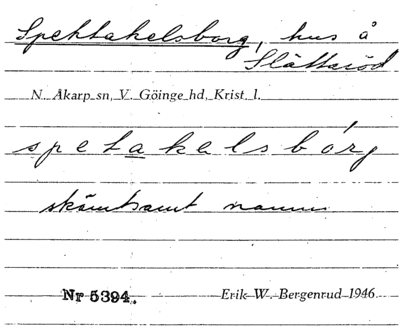 Spektakelsborg, hus å
Slättaröd
N. Åkarp sn, V. Göinge hd, Krist. l.
spetakelsbórg
skämtsamt namn
Nr 5394. Erik W. Bergenrud 1946